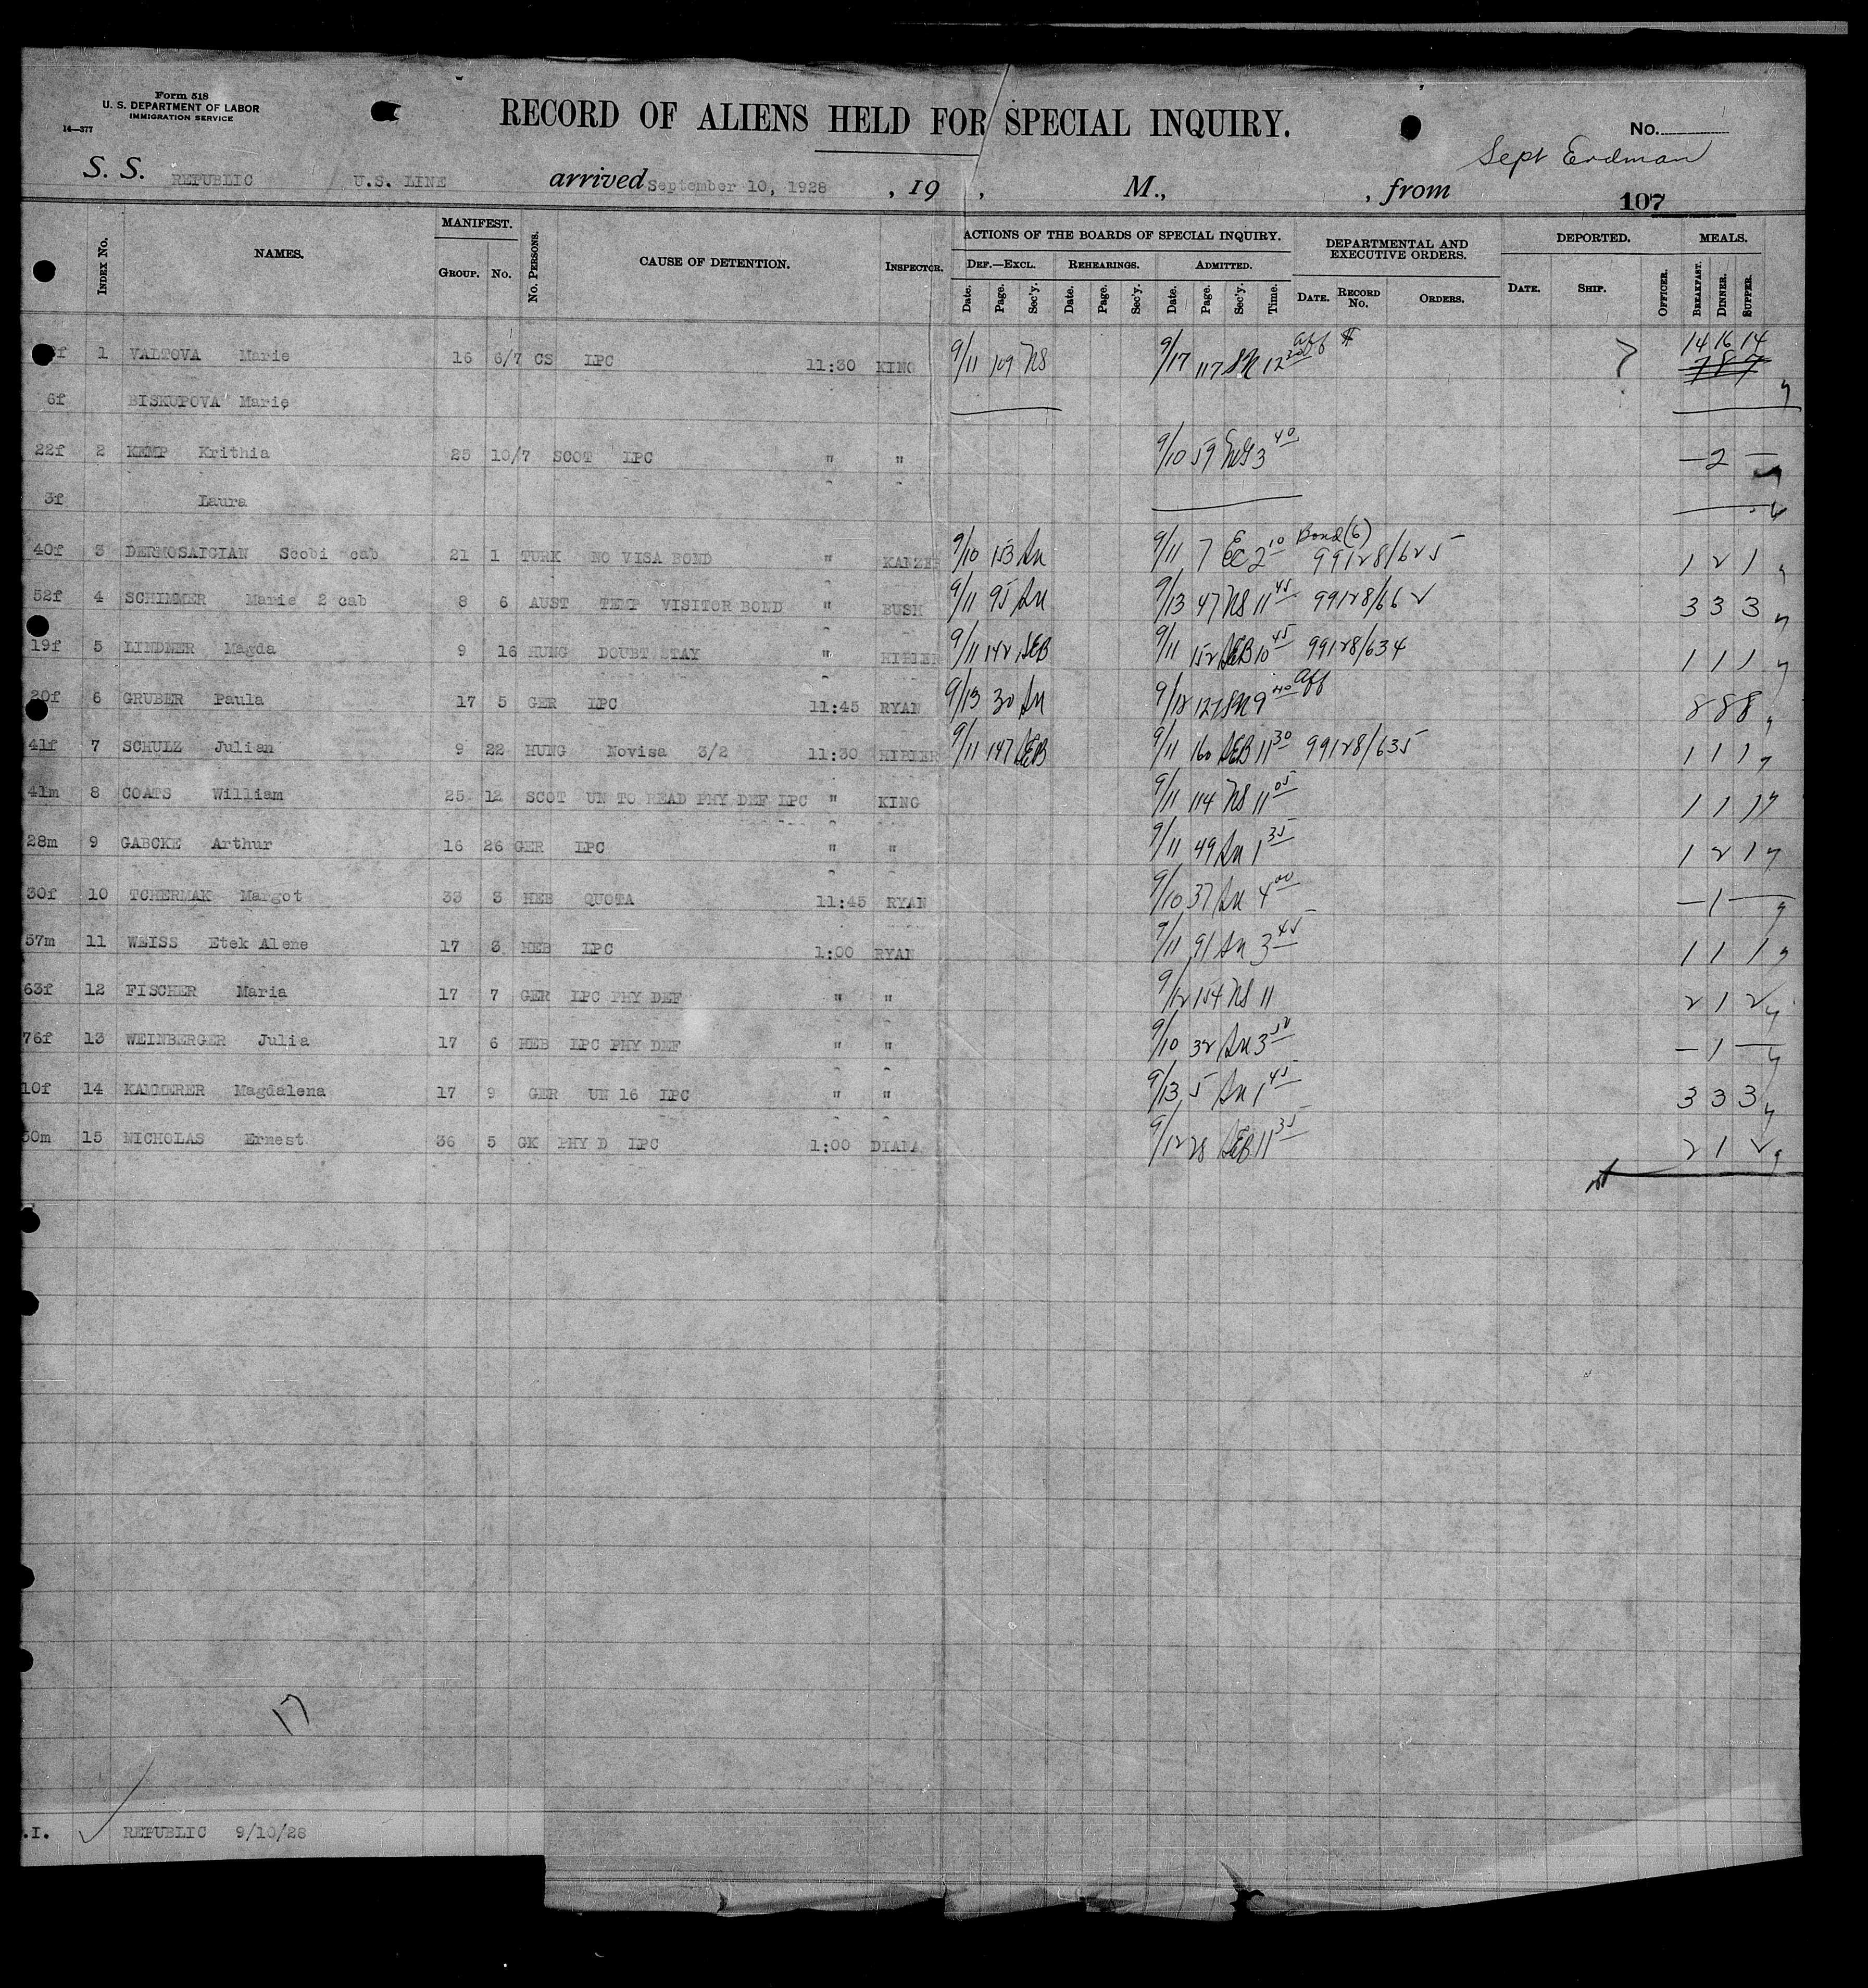 Form 518
U. S. DEPARTMENT OF LABOR
IMMIGRATION SERVICE
14—377
RECORD OF ALIENS HELD FOR SPECIAL INQUIRY.
No.
Sept Erdman
S. S. REPUBLIC U.S. LINE arrived September 10, 1928 , 19 , M., , from
107
Index No. NAMES. MANIFEST. Group. No. No. Persons. CAUSE OF DETENTION. Inspector. ACTIONS OF THE BOARDS OF SPECIAL INQUIRY. Def.—Excl. Date. Page. Sec'y. Rehearings. Date. Page. Sec'y. Admitted. Date. Page. Sec'y. Time. DEPARTMENTAL AND EXECUTIVE ORDERS. Date. Record No. Orders. DEPORTED. Date. Ship. Officer. MEALS. Breakfast. Dinner. Supper.
1 VALTOVA Marie 16 6/7 CS LPC 11:30 KING 9/11 109 NS 9/17 117 SR 12 30 Aff $ 14 16 14
7 8 7
6f BISKUPOVA Marie
22f 2 KEMP Krithia 25 10/7 SCOT LPC " " 9/10 59 3 40 — 2 —
3f Laura
40f 3 DERMOSAIGIAN Scobi cab 21 1 TURK NO VISA BOND " KANZER 9/10 153 An 9/11 7 EC 2 10 Bond (6) 99128/625 1 2 1
52f 4 SCHIMMER Marie 2 cab 8 6 AUST TEMP VISITOR BOND " BUSH 9/11 95 An 9/13 47 NS 11 45 99128/662 3 3 3
19f 5 LINDNER Magda 9 16 HUNG DOUBT STAY " HIPLER 9/11 142 SEB 9/11 152 SEB 10 45 99128/634 1 1 1
20f 6 GRUBER Paula 17 5 GER LPC 11:45 RYAN 9/13 30 An 9/18 127 SR 9 40 Aff 8 8 8
41f 7 SCHULZ Julian 9 22 HUNG Novisa 3/2 11:30 HIPLER 9/11 147 SEB 9/11 160 SEB 11 30 99128/635 1 1 1
41m 8 COATS William 25 12 SCOT UN TO READ PHY DEF LPC " KING 9/11 114 NS 11 05 1 1 1
28m 9 GABCKE Arthur 16 26 GER LPC " " 9/11 49 An 1 35 1 2 1
30f 10 TCHERMAK Margot 33 3 HEB QUOTA 11:45 RYAN 9/10 37 An 4 00 — 1 —
57m 11 WEISS Etek Alene 17 3 HEB LPC 1:00 RYAN 9/11 91 An 3 45 1 1 1
63f 12 FISCHER Maria 17 7 GER LPC PHY DEF " " 9/12 154 NS 11 2 1 2
76f 13 WEINBERGER Julia 17 6 HEB LPC PHY DEF " " 9/10 32 An 3 50 — 1 —
10f 14 KAMMERER Magdalena 17 9 GER UN 16 LPC " " 9/13 5 An 1 45 3 3 3
50m 15 NICHOLAS Ernest 36 5 GK PHY D LPC 1:00 DIANA 9/12 28 SEB 11 35 2 1 2
17
.I. REPUBLIC 9/10/28